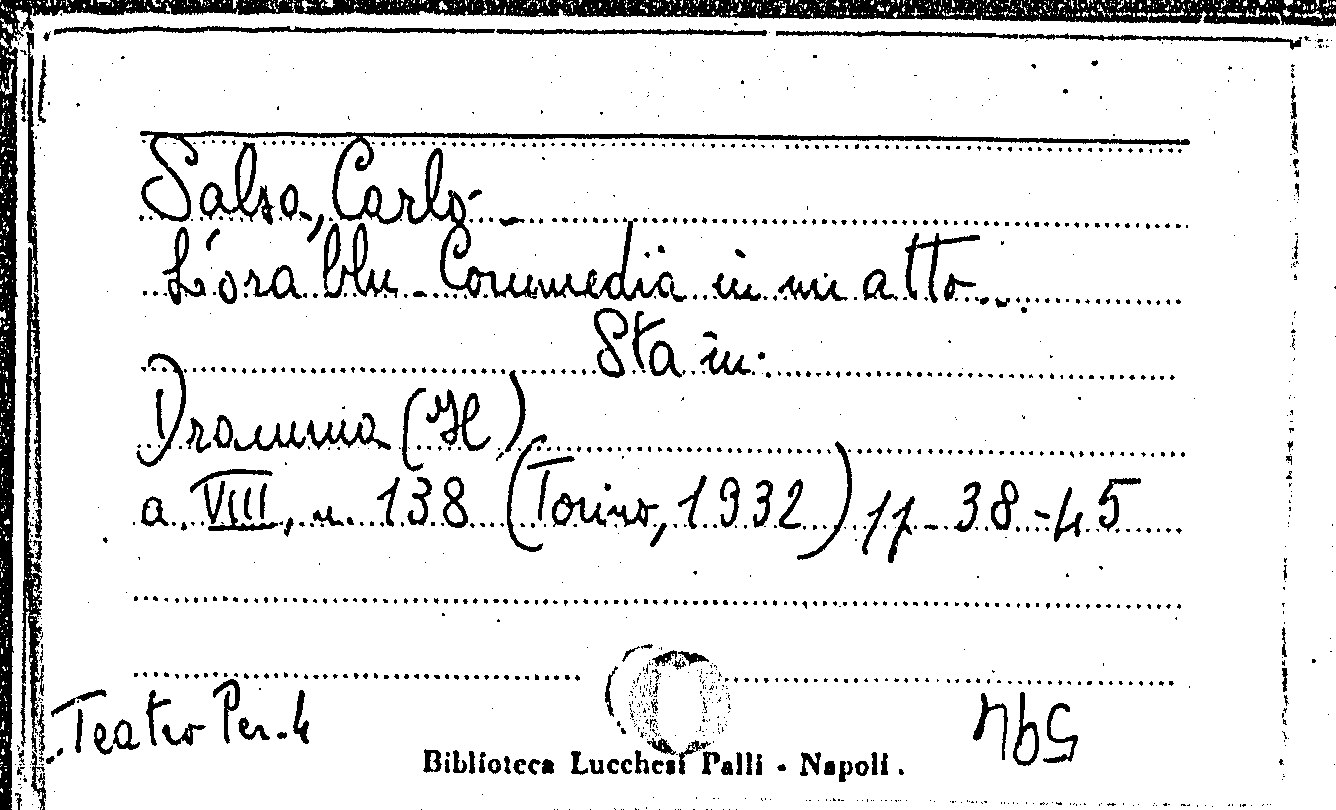 Salsa, Carlo -
L'ora blu - Commedia in un atto..
Sta in:
Dramma (Il)
a. VIII, n. 138 (Torino, 1932) pp. 38-45
Teatro Per. 4
Biblioteca Lucchesi Palli - Napoli.